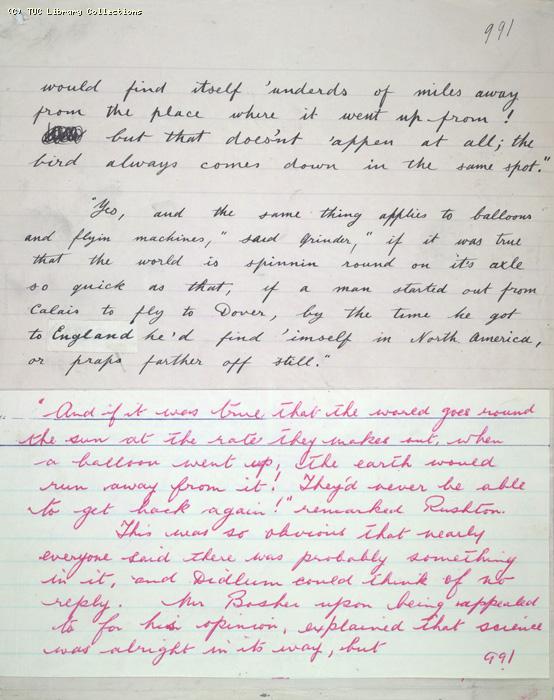 (C) TUC Library Collections
991
would find itself 'underds of miles away
from the place where it went up from!
but that does'nt 'appen at all; the
bird always comes down in the same spot."
"Yes, and the same thing applies to balloons
and flyin machines," said Grinder, "if it was true
that the world is spinnin round on it's axle
so quick as that, if a man started out from
Calais to fly to Dover, by the time he got
to England he'd find 'imself in North America,
or praps farther off still."
"And if it was true that the world goes round
the sun at the rate they makes out, when
a balloon went up, the earth would
run away from it! They'd never be able
to get back again!" remarked Rushton.
This was so obvious that nearly
everyone said there was probably something
in it, and Didlum could think of no
reply. Mr Bosher upon being appealed
to for his opinion, explained that science
was alright in its way, but
991